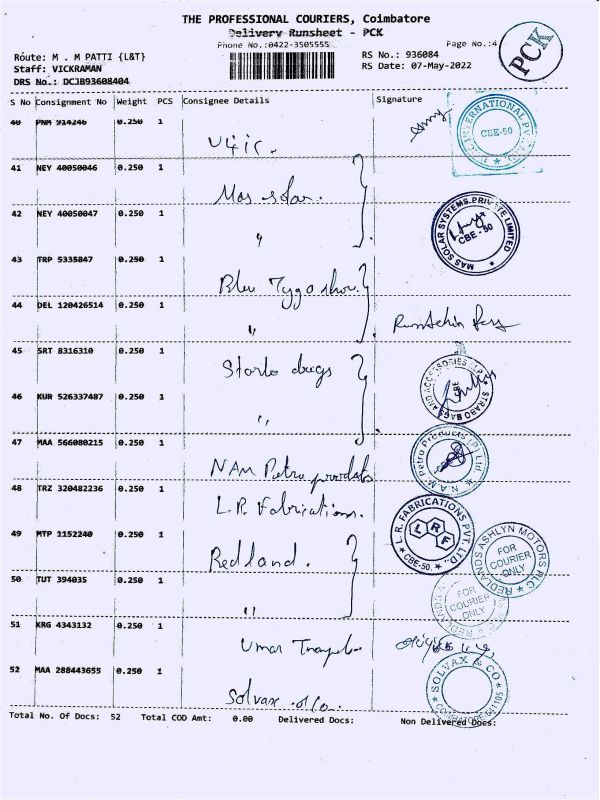 THE PROFESSIONAL COURIERS, Coimbatore
Delivery Runsheet - PCK
Phone No.:0422-3505555
Page No.:4
PCK
Route: M . M PATTI {L&T}
RS No.: 936084
Staff: VICKRAMAN
RS Date: 07-May-2022
DRS No.: DCJB93608404
S No Consignment No Weight PCS Consignee Details Signature
40 PNM 914246 0.250 1
INTERNATIONAL PVT. CBE-50
41 NEY 40050046 0.250 1 Mas solar.
42 NEY 40050047 0.250 1 "
MAS SOLAR SYSTEMS PRIVATE LIMITED CBE - 50
43 TRP 5335847 0.250 1
44 DEL 120426514 0.250 1 "
45 SRT 8316310 0.250 1 drugs
46 KUR 526337487 0.250 1 "
STRABO BAGS AND ACCESSORIES CBE
47 MAA 566080215 0.250 1 NAM Petro products
N.A.M. Petro Products (P) Ltd
48 TRZ 320482236 0.250 1 L.R. Fabrications.
L.R. FABRICATIONS PVT. LTD. CBE-50. LRF
49 MTP 1152240 0.250 1 Redland.
REDLANDS ASHLYN MOTORS PLC FOR COURIER ONLY
50 TUT 394035 0.250 1 "
FOR COURIER ONLY
51 KRG 4343132 0.250 1 Umar
52 MAA 288443655 0.250 1 Solvax & Co.
SOLVAX & CO COIMBATORE
Total No. Of Docs: 52 Total COD Amt: 0.00 Delivered Docs: Non Delivered Docs: